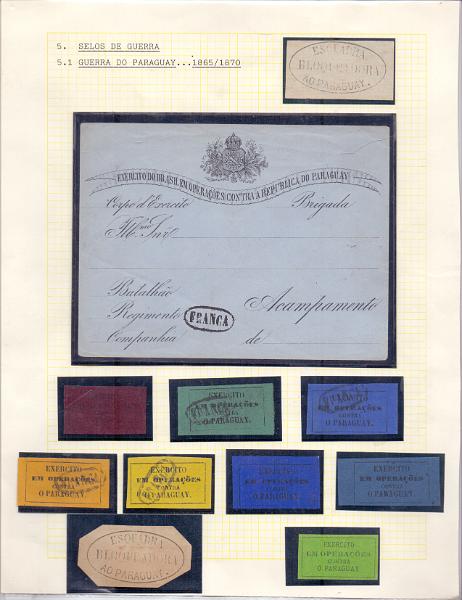 5. SELOS DE GUERRA
5.1 GUERRA DO PARAGUAY...1865/1870
ESQUADRA
BLOQUEADORA
AO PARAGUAY.
EXERCITO DO BRASIL EM OPERAÇÕES CONTRA A REPUBLICA DO PARAGUAY
Corpo d'Exercito Brigada
Illmo Snr
Batalhão
Regimento FRANCA Acampamento
Companhia de
EXERCITO
EM OPERAÇÕES
CONTRA
O PARAGUAY.
FRANCA
EXERCITO
EM OPERAÇÕES
CONTRA
O PARAGUAY.
EXERCITO
EM OPERAÇÕES
CONTRA
O PARAGUAY.
EXERCITO
EM OPERAÇÕES
CONTRA
O PARAGUAY.
EXERCITO
EM OPERAÇÕES
CONTRA
O PARAGUAY.
EXERCITO
EM OPERAÇÕES
CONTRA
O PARAGUAY.
ESQUADRA
BLOQUEADORA
AO PARAGUAY.
EXERCITO
EM OPERAÇÕES
CONTRA
O PARAGUAY